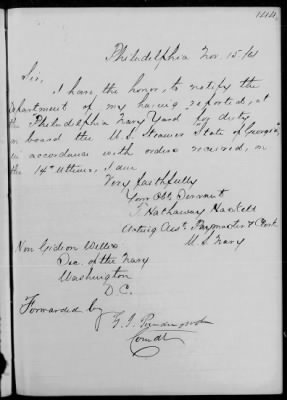 144
Philadelphia Nov. 15/61
Sir,
I have the honor, to notify the
Department of my having reported, at
the Philadelphia Navy Yard for duty
on board the U.S. Steamer State of Georgia,
in accordance with orders received, on
the 14th Ultimo, I am
Very faithfully
Your Obt. Servant
T. Hathaway Haskell
Acting Asst. Paymaster & Clerk
U.S. Navy
Hon Gideon Welles
Sec. of the Navy
Washington
D.C.
Forwarded by
G. J. Pendergrast
Comdt.